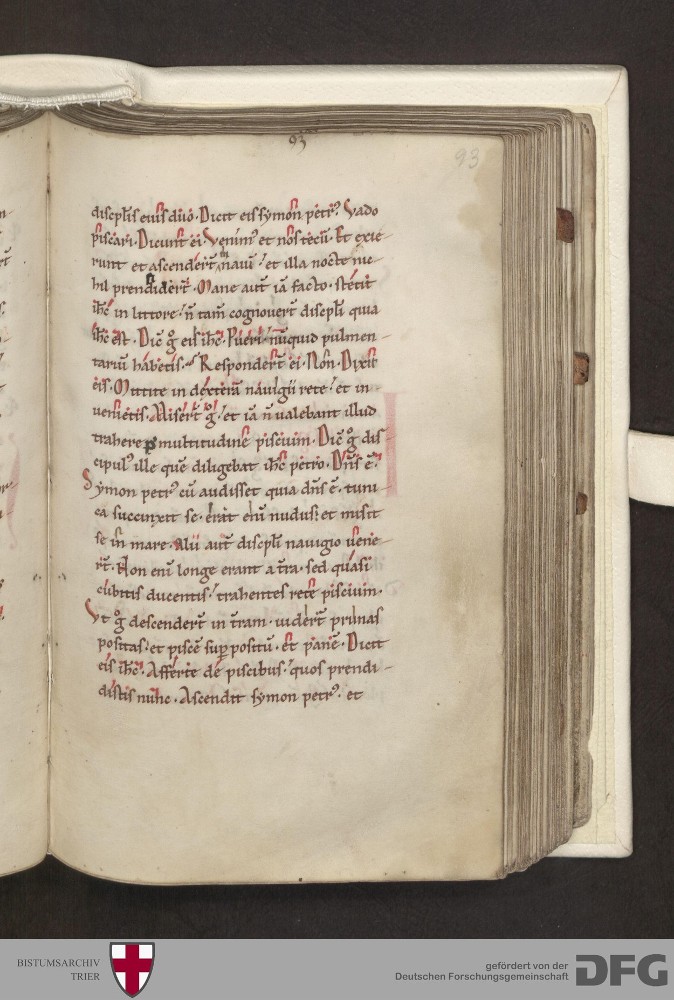 93
93
discipl̄is eius duo. Dicit eis symon petrꝰ. Vado
piscari. Dicunt ei. Venimꝰ et nos tecū. Et exie-
runt et ascendert̄ nauī. et illa nocte ni-
hil prendidert̄. Mane aut̄ iā facto. stetit
ihc̄ in littore. n̄ tam̄ cognouert̄ discipl̄i quia
ihc̄ est. Dic̄ g̊ eis ihc̄. Pueri. nūquid pulmen-
tariū habetis. Respondert̄ ei. Non. Dixit
eis. Mittite in dexterā nauigii rete. et in-
uenietis. Misert̄ g̊. et iā n̄ ualebant illud
trahere p̄ multitudine pisciuim. Dic̄ g̊ dis-
cipulꝰ ille quē diligebat ihc̄ petro. Dn̄s ē.
Symon petrꝰ cū audisset quia dn̄s ē. tuni-
ca succinxit se. erat eni nudus. et misit
se in mare. Alii aut̄ discipl̄i nauigio uene-
rt̄. Non eni longe erant a tr̄a. sed quasi
cubitis ducentis. trahentes rete pisciuim.
Vt g̊ descendert̄ in tr̄am. uidert̄ prunas
positas. et piscē sup̄ positū. et panē. Dicit
eis ihc̄. Afferte de piscibus. quos prendi-
distis nunc. Ascendit symon petrꝰ. et
BISTUMSARCHIV
TRIER
gefördert von der
Deutschen Forschungsgemeinschaft
DFG